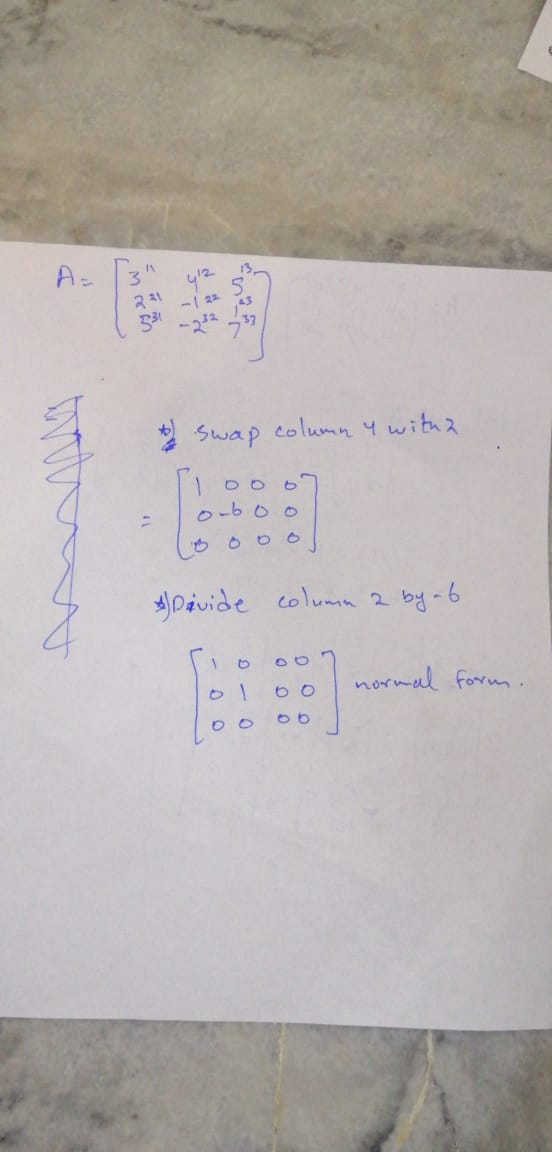 A = [ 3¹¹ 4¹² 5¹³
2²¹ -1²² 1²³
5³¹ -2³² 7³³ ]
swap column 4 with 2
= [ 1 0 0 0
0 -6 0 0
0 0 0 0 ]
*) Divide column 2 by -6
[ 1 0 0 0
0 1 0 0 ] normal form.
0 0 0 0